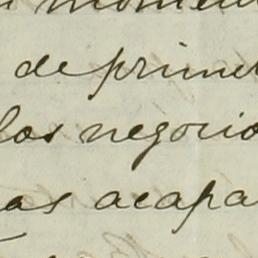 momen
de prime
los negocio
as acapa